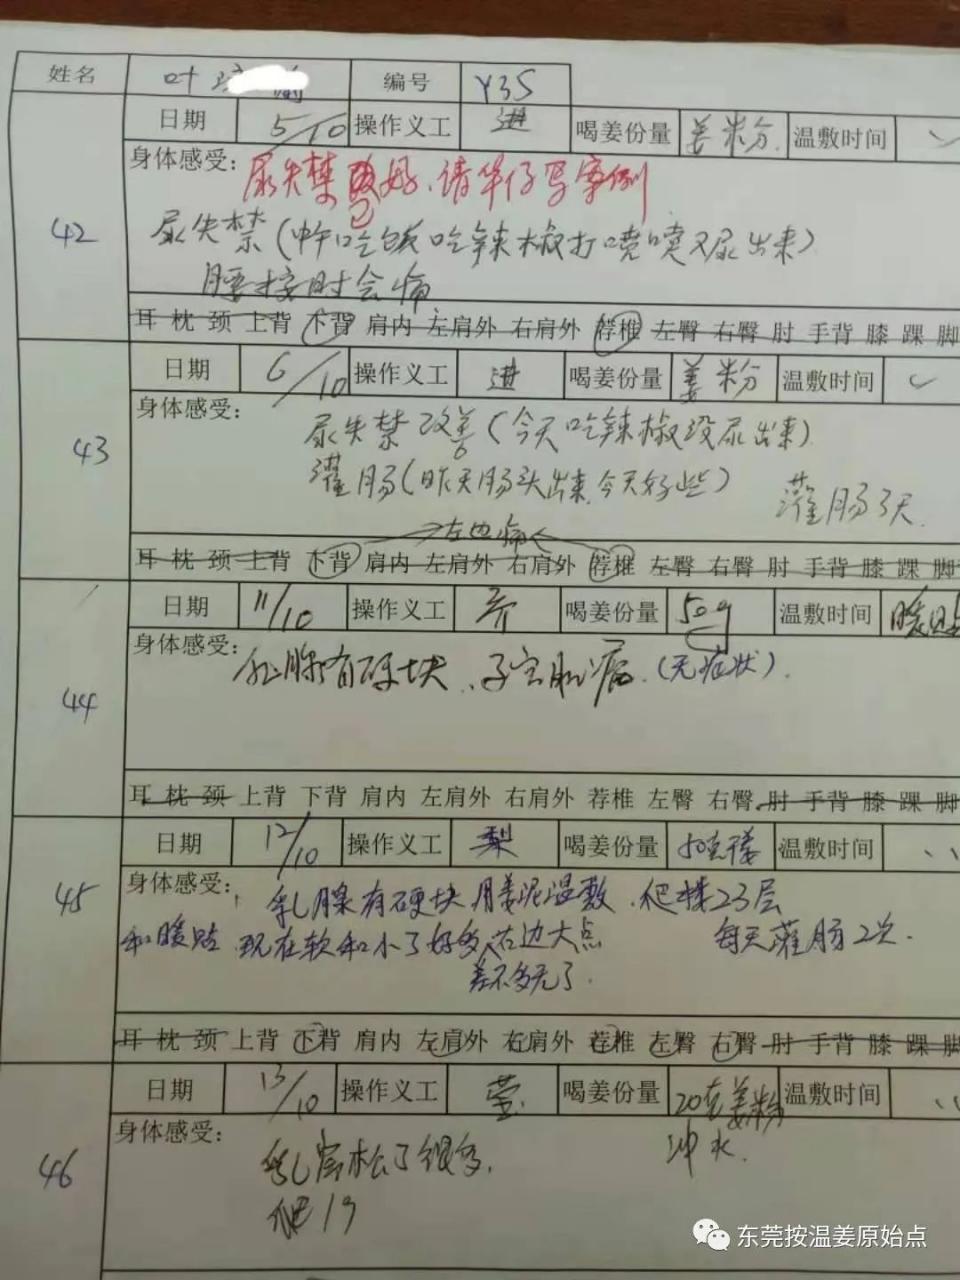 姓名 叶 编号 Y35
日期 5/10 操作义工 进 喝姜份量 姜粉 温敷时间
身体感受: 尿失禁已好、请华仔写案例
42
尿失禁(中午吃饭吃辣椒打喷嚏又尿出来)
腰按时会痛
耳 枕 颈 上背 下背 肩内 左肩外 右肩外 荐椎 左臀 右臀 肘 手背 膝 踝 脚
日期 6/10 操作义工 进 喝姜份量 姜粉 温敷时间
身体感受:
43
尿失禁改善(今天吃辣椒没尿出来)
灌肠(昨天肠头出来,今天好些) 灌肠3天
左边痛
耳 枕 颈 上背 下背 肩内 左肩外 右肩外 荐椎 左臀 右臀 肘 手背 膝 踝 脚
日期 11/10 操作义工 喝姜份量 50g 温敷时间 暖贴
身体感受:
44
乳腺有硬块、子宫肌瘤.(无症状).
耳 枕 颈 上背 下背 肩内 左肩外 右肩外 荐椎 左臀 右臀 肘 手背 膝 踝 脚
日期 12/10 操作义工 梨 喝姜份量 50克 温敷时间
45
身体感受: 乳腺有硬块用姜泥温敷.爬楼23层
和暖贴 现在软和小了好多,右边大点 每天灌肠2次.
差不多无了.
耳 枕 颈 上背 下背 肩内 左肩外 右肩外 荐椎 左臀 右臀 肘 手背 膝 踝 脚
日期 13/10 操作义工 莹 喝姜份量 20克姜粉 温敷时间
冲水.
身体感受:
46
乳房松了很多,
爬13
东莞按温姜原始点